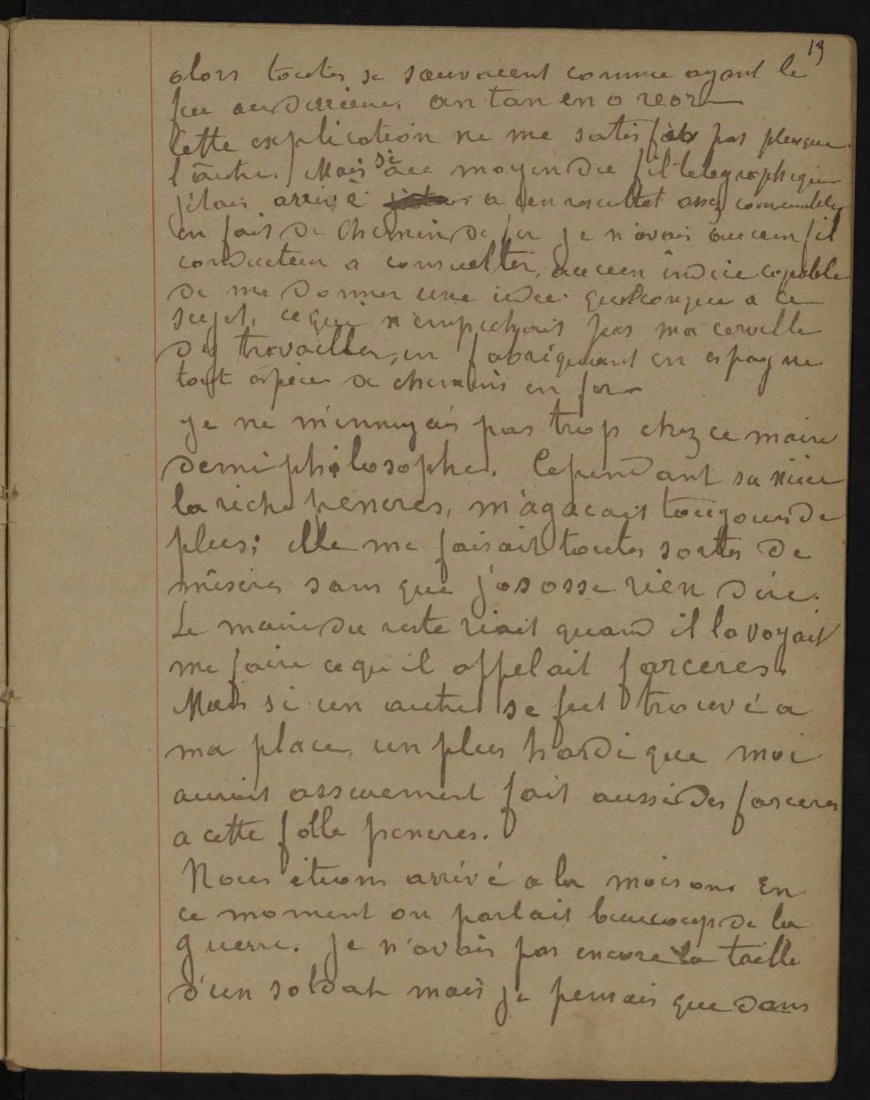 19
alors toutes se sauvaient comme ayant le
feu au derriere. an tan en o reor
Cette explication ne me satisfait pas plus que
l'autre. Mais si au moyen du fil telegraphique
j'étais arrivé a un resultat assez convenable
en fait de chemin de fer je n'avais aucun fil
conducteur a consulter, aucun indice capable
de me donner une idée quelconque a ce
sujet, ce qui n'empechait pas ma cervelle
d'y travailler, en fabriquant en espagne
tout espèce de chemins en fer
Je ne m'ennuyais pas trop chez ce maire
demi philosophe. Cependant sa nièce
la riche peneres, m'agacait toujours de
plus; elle me faisait toutes sortes de
misères sans que j'osasse rien dire.
Le maire du reste riait quand il la voyait
me faire ce qu'il appelait farceres
Mais si un autre se fut trouvé a
ma place, un plus hardi que moi
aurait assurement fait aussi des farceres
a cette folle peneres.
Nous étions arrivé a la moisons En
ce moment on parlait beaucoup de la
guerre. Je n'avais pas encore la taille
d'un soldat mais je pensais que dans